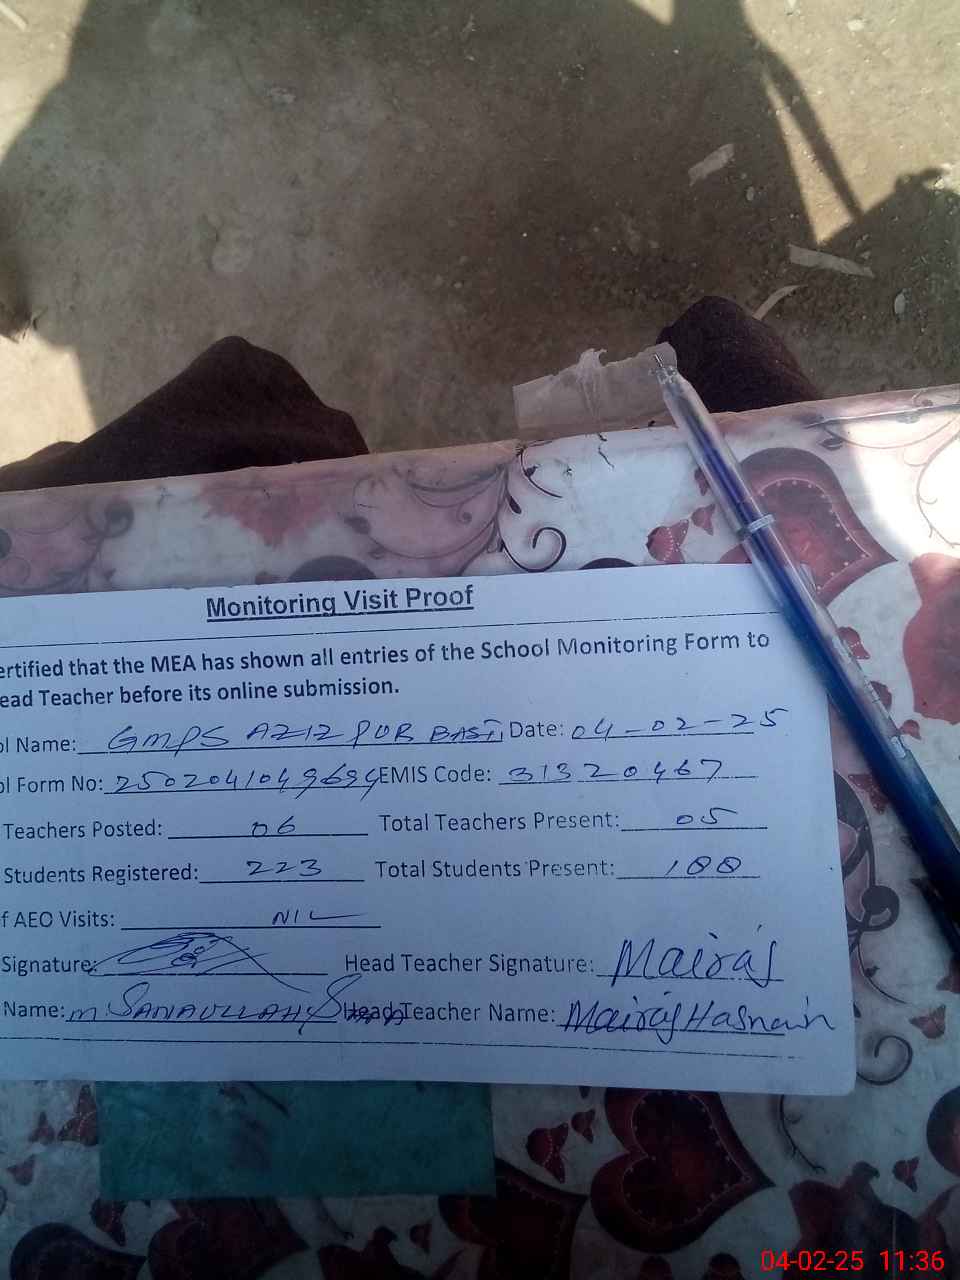 Monitoring Visit Proof
ertified that the MEA has shown all entries of the School Monitoring Form to
ead Teacher before its online submission.
ol Name: GMPS AZIZ PUR BASTI Date: 04-02-25
ol Form No: 2502041049694 EMIS Code: 31320467
Teachers Posted: 06 Total Teachers Present: 05
Students Registered: 223 Total Students Present: 100
f AEO Visits: NIL
Signature: Head Teacher Signature: Mairaj
Name: M. SANAULLAH Head Teacher Name: Mairaj Hasnain
04-02-25 11:36